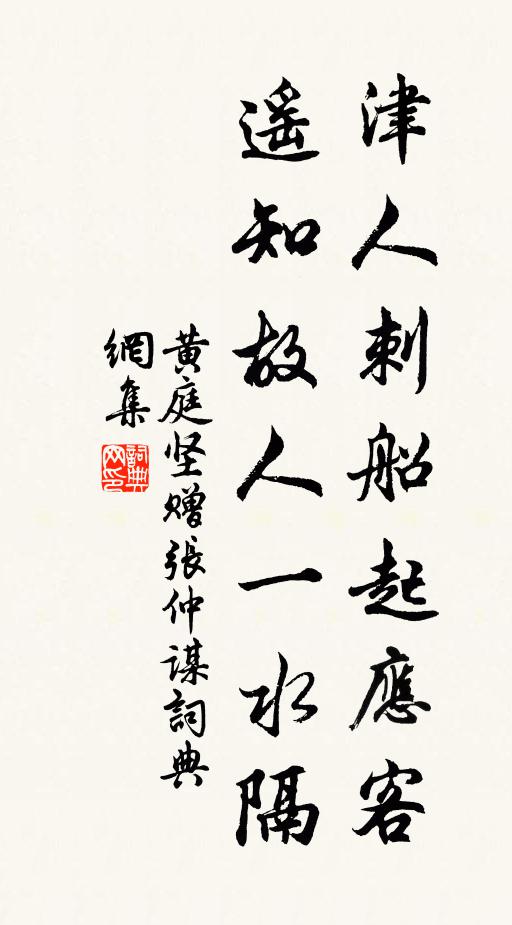 津人刺船起應客
遥知故人一水隔
黄庭坚赠張仲謀詞典
網集
詞典
网印